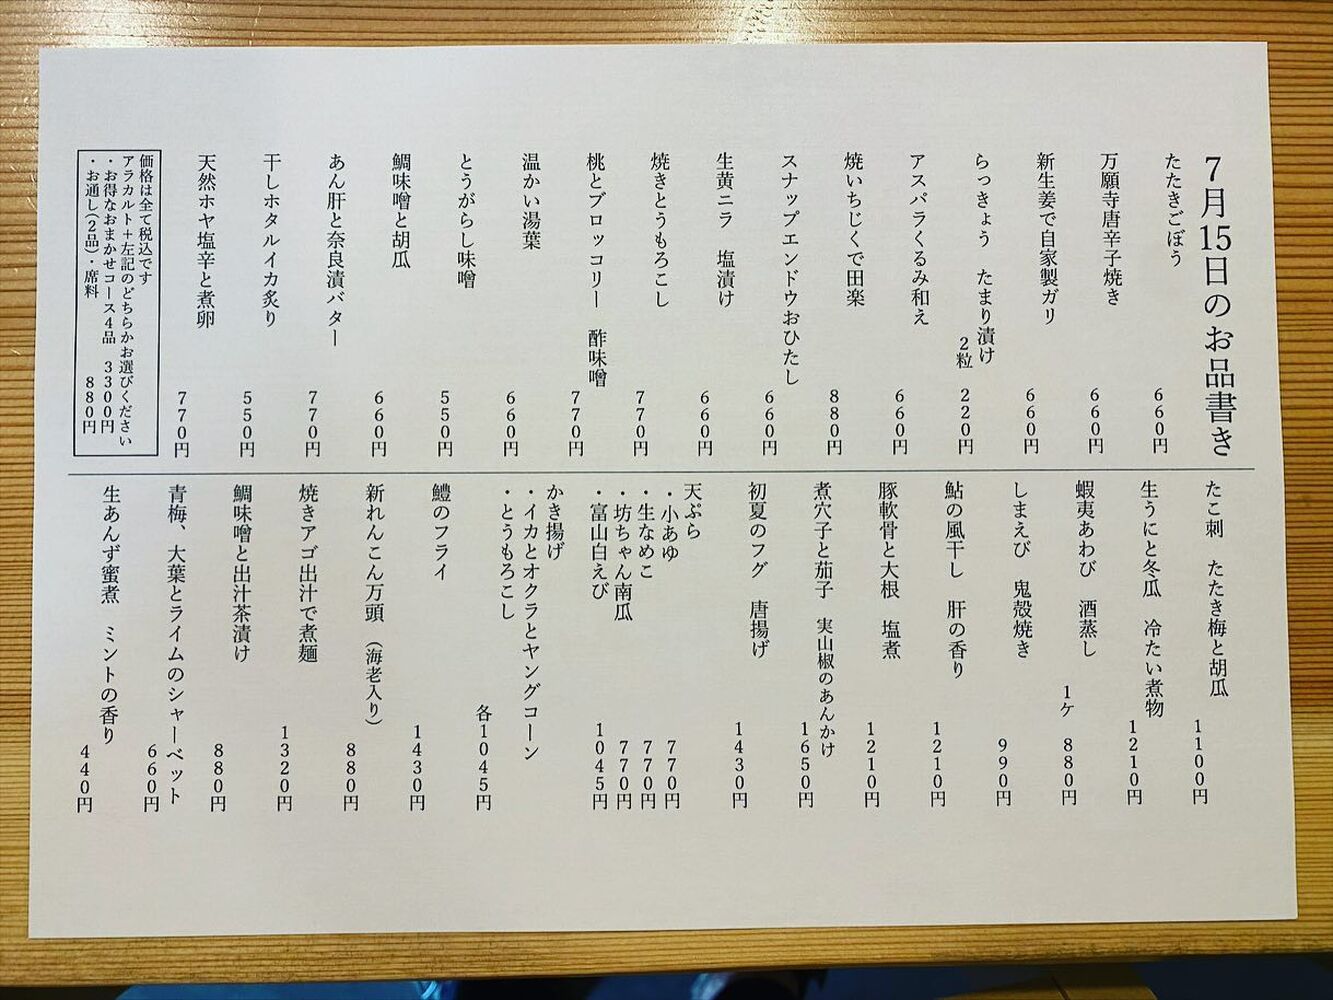 7月15日のお品書き
たたきごぼう 660円
万願寺唐辛子焼き 660円
新生姜で自家製ガリ 660円
らっきょう たまり漬け 2粒 220円
アスパラくるみ和え 660円
焼いちじくで田楽 880円
スナップエンドウおひたし 660円
生黄ニラ 塩漬け 660円
焼きとうもろこし 770円
桃とブロッコリー 酢味噌 770円
温かい湯葉 660円
とうがらし味噌 550円
鯛味噌と胡瓜 660円
あん肝と奈良漬バター 770円
干しホタルイカ炙り 550円
天然ホヤ塩辛と煮卵 770円
価格は全て税込です
アラカルト+左記のどちらかお選びください
・お得なおまかせコース4品 3300円
・お通し(2品)・席料 880円
たこ刺 たたき梅と胡瓜 1100円
生うにと冬瓜 冷たい煮物 1210円
蝦夷あわび 酒蒸し 1ケ 880円
しまえび 鬼殻焼き 990円
鮎の風干し 肝の香り 1210円
豚軟骨と大根 塩煮 1210円
煮穴子と茄子 実山椒のあんかけ 1650円
初夏のフグ 唐揚げ 1430円
天ぷら
・小あゆ 770円
・生なめこ 770円
・坊ちゃん南瓜 770円
・富山白えび 1045円
かき揚げ
・イカとオクラとヤングコーン
・とうもろこし 各1045円
鱧のフライ 1430円
新れんこん万頭(海老入り) 880円
焼きアゴ出汁で煮麺 1320円
鯛味噌と出汁茶漬け 880円
青梅、大葉とライムのシャーベット 660円
生あんず蜜煮 ミントの香り 440円